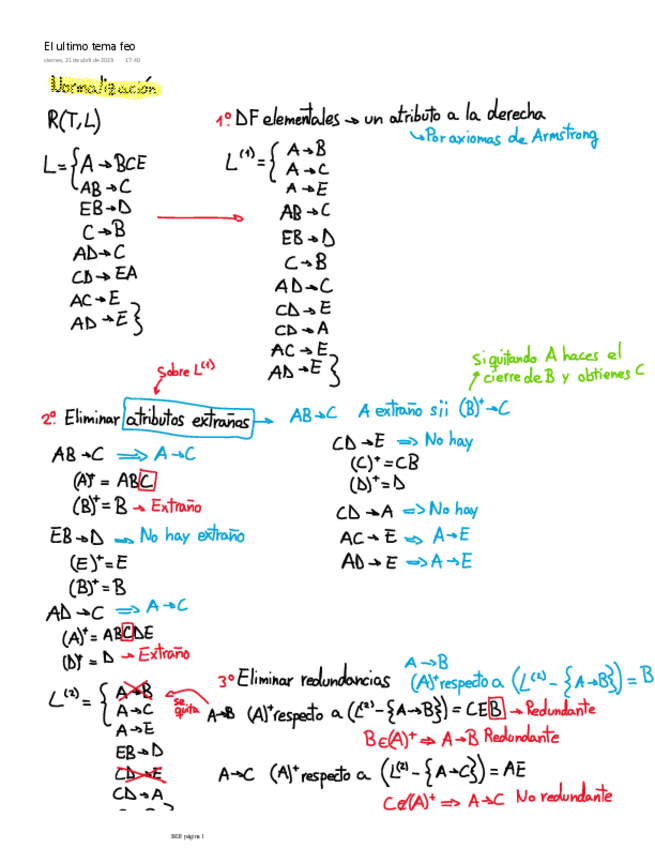 El ultimo tema feo
viernes, 21 de abril de 2023 17:40
Normalización
R(T,L)
L={A→BCE
AB→C
EB→D
C→B
AD→C
CD→EA
AC→E
AD→E}
1º DF elementales → un atributo a la derecha
↳Por axiomas de Armstrong
L⁽¹⁾={A→B
A→C
A→E
AB→C
EB→D
C→B
AD→C
CD→E
CD→A
AC→E
AD→E}
Sobre L⁽¹⁾
2º Eliminar atributos extraños → AB→C A extraño sii (B)⁺→C
Si quitando A haces el
cierre de B y obtienes C
AB→C ⇒ A→C
(A)⁺ = ABC
(B)⁺ = B → Extraño
EB→D → No hay extraño
(E)⁺ = E
(B)⁺ = B
AD→C ⇒ A→C
(A)⁺ = ABCDE
(D)⁺ = D → Extraño
CD→E ⇒ No hay
(C)⁺ = CB
(D)⁺ = D
CD→A ⇒ No hay
AC→E ⇒ A→E
AD→E ⇒ A→E
L⁽²⁾ = {A→B
A→C
A→E
EB→D
CD→E
CD→A
}
se quita
3º Eliminar redundancias
A→B
(A)⁺ respecto a (L⁽²⁾-{A→B}) = B
A→B (A)⁺ respecto a (L⁽²⁾-{A→B}) = CEB → Redundante
B∈(A)⁺ ⇒ A→B Redundante
A→C (A)⁺ respecto a (L⁽²⁾-{A→C}) = AE
C∉(A)⁺ ⇒ A→C No redundante
BGE página 1